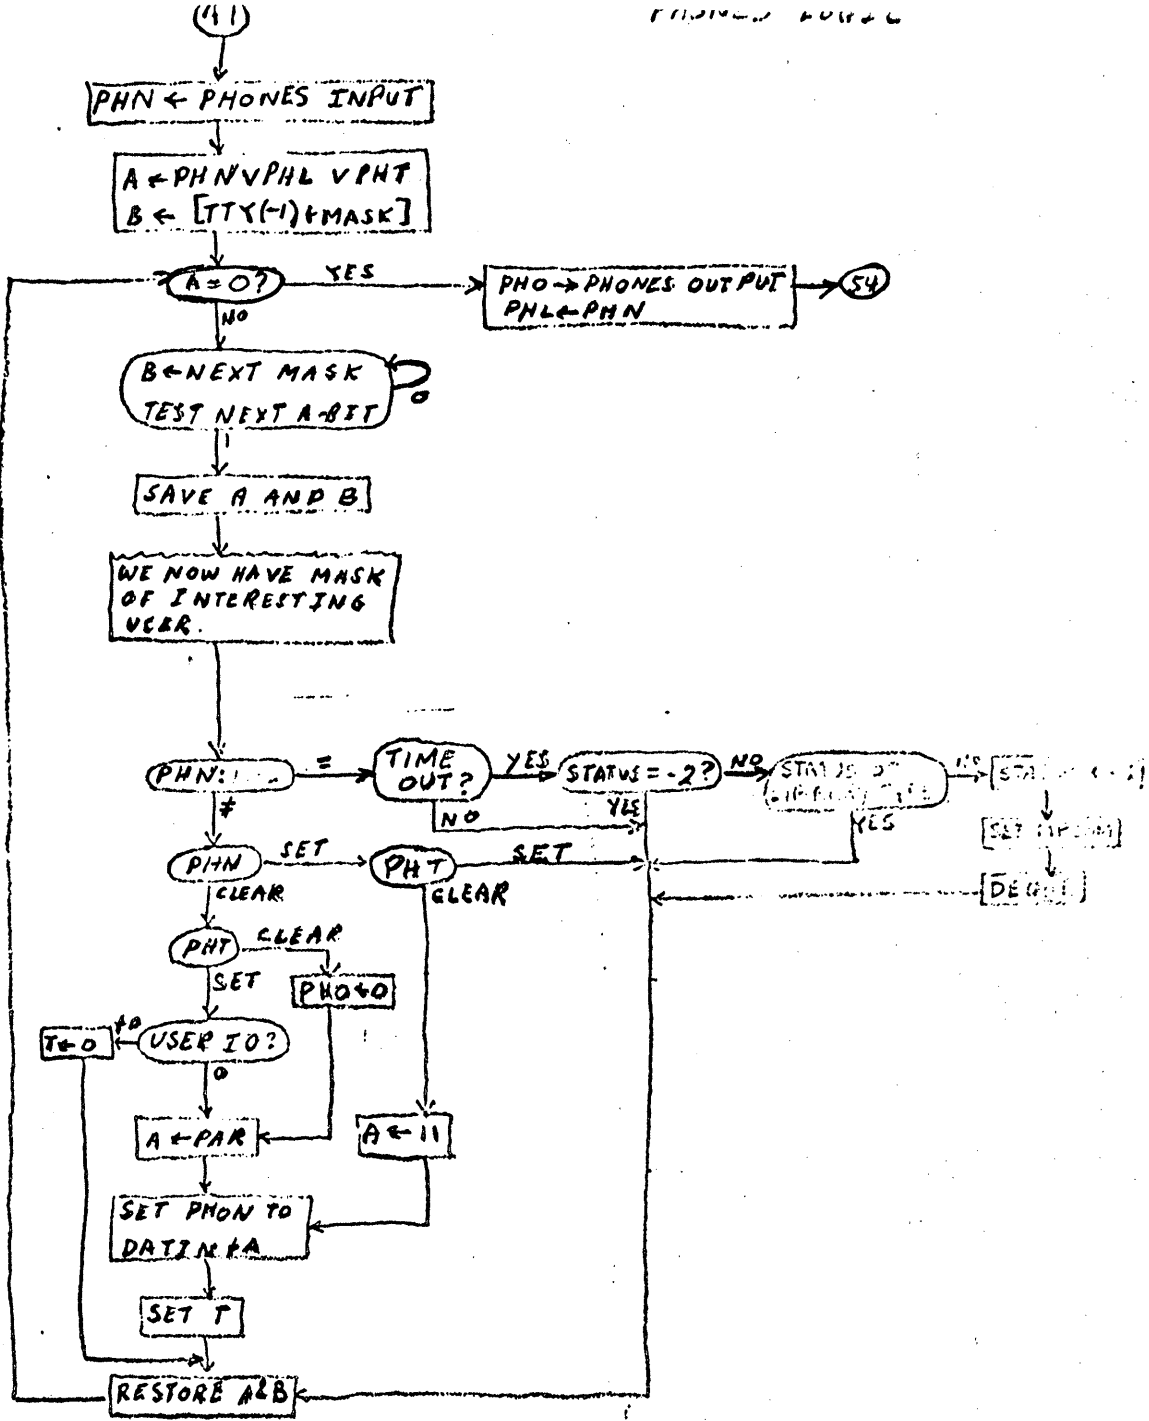 41
PHONES LOGIC
PHN ← PHONES INPUT
A ← PHN V PHL V PHT
B ← [TTY(-1)+MASK]
A = 0?
YES
PHO → PHONES OUTPUT
PHL ← PHN
54
NO
B ← NEXT MASK
TEST NEXT A-BIT
0
1
SAVE A AND B
WE NOW HAVE MASK
OF INTERESTING
USER.
PHN:
=
TIME
OUT?
YES
STATUS = -2?
NO
STATUS OF
NO
YES
NO
YES
≠
PHN
SET
PHT
SET
CLEAR
CLEAR
PHT
CLEAR
SET
PHO ← 0
USER IO?
≠0
T ← 0
0
A ← PAR
A ← 11
SET PHON TO
DATIN + A
SET T
RESTORE A&B